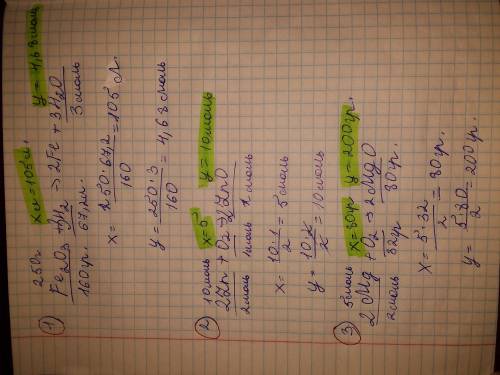 ① 250г x = 105 л. y = 4,68 моль
Fe2O3 + 3H2 → 2Fe + 3H2O
160гр 67,2л. 3 моль
x = 250·67,2 / 160 = 105 л.
y = 250·3 / 160 = 4,68 моль
② 10 моль x = 5 y = 10 моль
2Zn + O2 → 2ZnO
2 моль 1 моль 2 моль
x = 10·1 / 2 = 5 моль
y = 10·2 / 2 = 10 моль
③ 5 моль x = 80гр y = 200гр.
2Mg + O2 → 2MgO
2 моль 32гр 80гр.
x = 5·32 / 2 = 80гр.
y = 5·80 / 2 = 200гр.